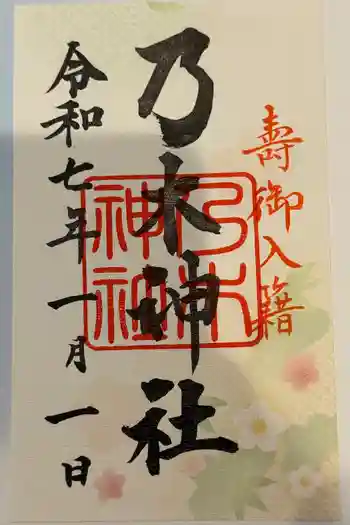 壽御入籍
乃木神社
乃木
神社
令和七年一月一日